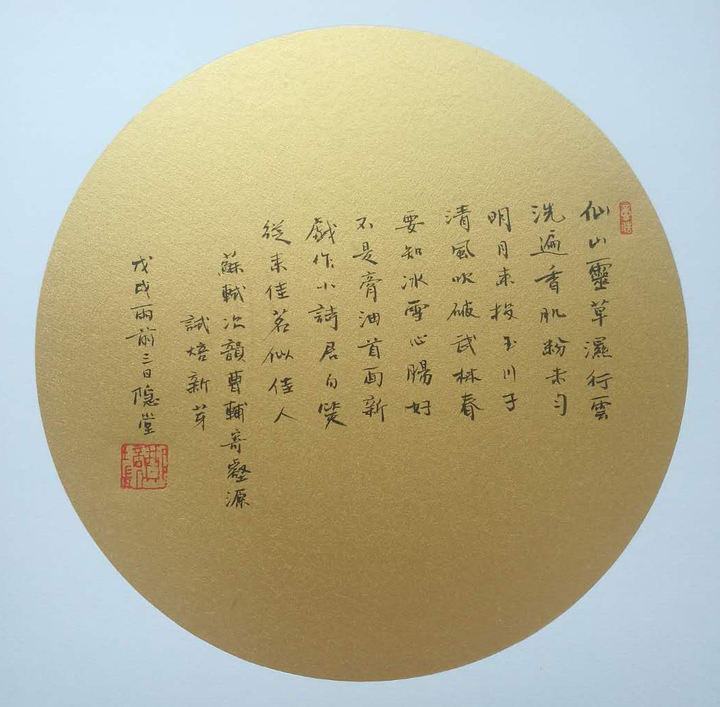 仙山靈草濕行雲
洗遍香肌粉未勻
明月來投玉川子
清風吹破武林春
要知冰雪心腸好
不是膏油首面新
戲作小詩君勿笑
從來佳茗似佳人
蘇軾次韻曹輔寄壑源
試焙新芽
戊戌雨前三日隱堂